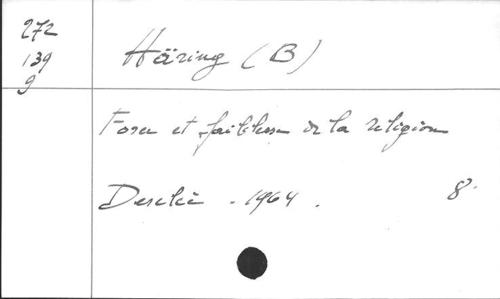 272
139
9
Häring (B)
Force et faiblesse de la religion
Desclée . 1964 . 8°